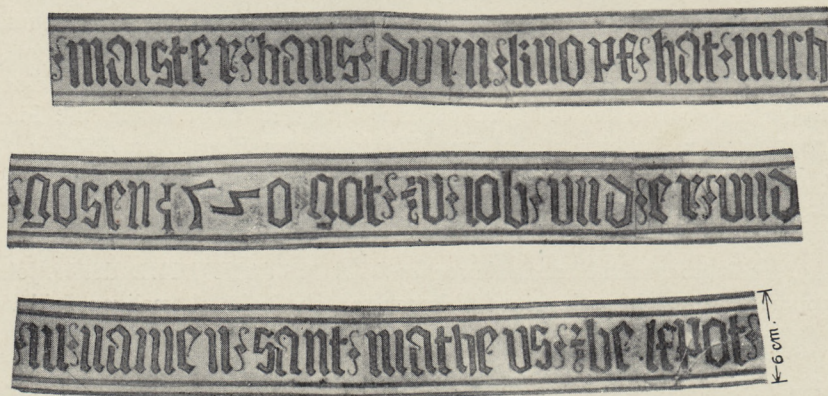 maister hans durn knopf hat mich
gosen got zu lob und er und
in namen sant matheus
6 cm.